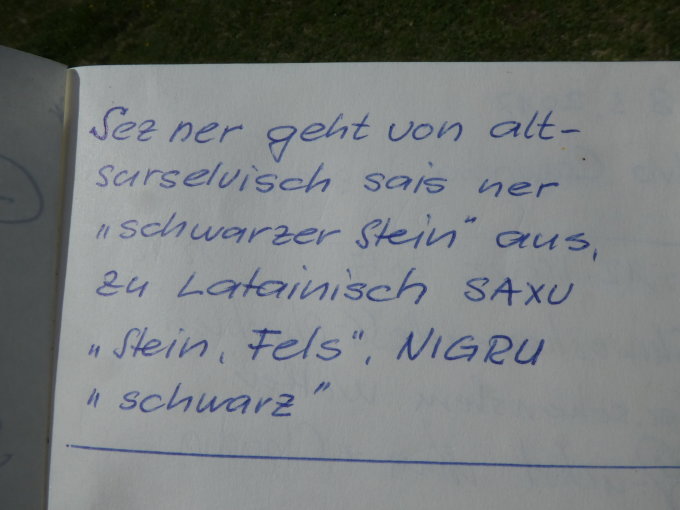 Sez ner geht von alt-
surselvisch sais ner
„schwarzer Stein" aus,
zu Latainisch SAXU
„Stein, Fels", NIGRU
„schwarz"